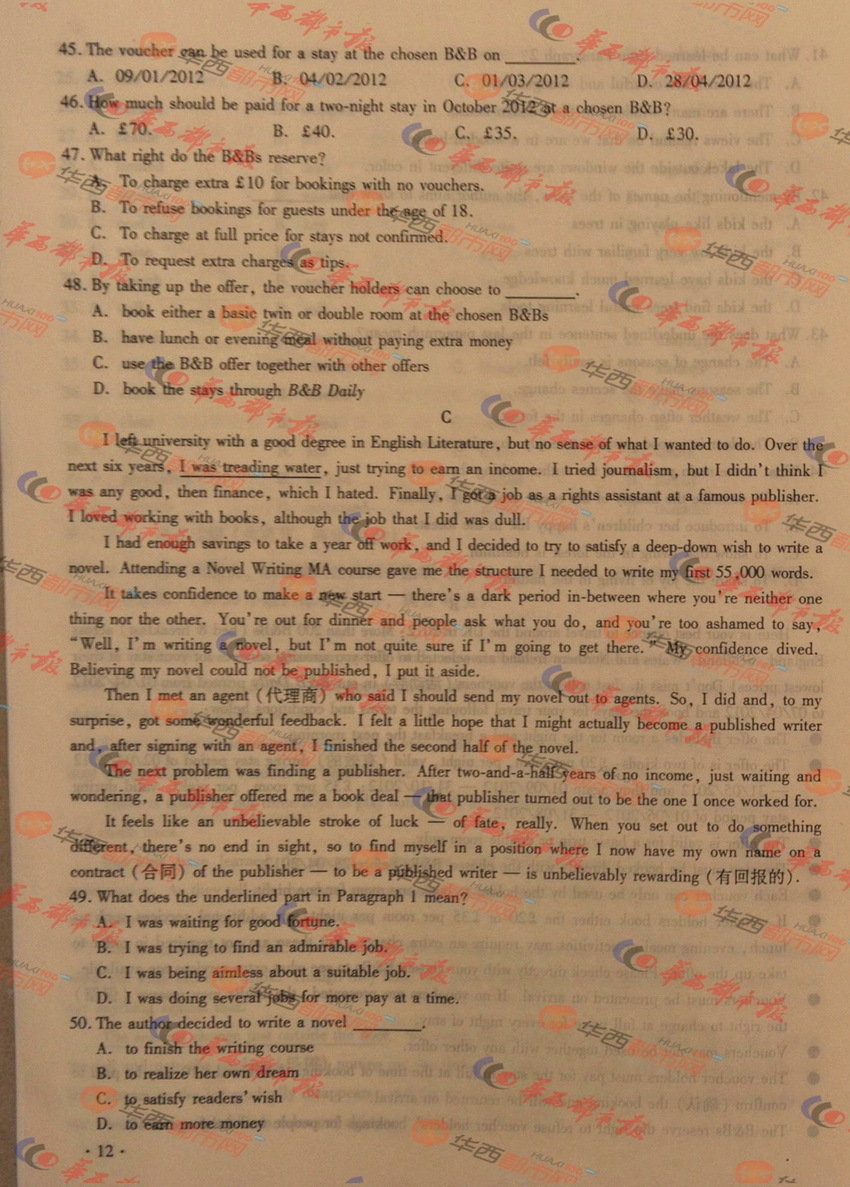 45. The voucher can be used for a stay at the chosen B&B on ________.
A. 09/01/2012 B. 04/02/2012 C. 01/03/2012 D. 28/04/2012
46. How much should be paid for a two-night stay in October 2012 at a chosen B&B?
A. £70. B. £40. C. £35. D. £30.
47. What right do the B&Bs reserve?
A. To charge extra £10 for bookings with no vouchers.
B. To refuse bookings for guests under the age of 18.
C. To charge at full price for stays not confirmed.
D. To request extra charges as tips.
48. By taking up the offer, the voucher holders can choose to ________.
A. book either a basic twin or double room at the chosen B&Bs
B. have lunch or evening meal without paying extra money
C. use the B&B offer together with other offers
D. book the stays through B&B Daily
C
I left university with a good degree in English Literature, but no sense of what I wanted to do. Over the
next six years, I was treading water, just trying to earn an income. I tried journalism, but I didn't think I
was any good, then finance, which I hated. Finally, I got a job as a rights assistant at a famous publisher.
I loved working with books, although the job that I did was dull.
I had enough savings to take a year off work, and I decided to try to satisfy a deep-down wish to write a
novel. Attending a Novel Writing MA course gave me the structure I needed to write my first 55,000 words.
It takes confidence to make a new start — there's a dark period in-between where you're neither one
thing nor the other. You're out for dinner and people ask what you do, and you're too ashamed to say,
"Well, I'm writing a novel, but I'm not quite sure if I'm going to get there." My confidence dived.
Believing my novel could not be published, I put it aside.
Then I met an agent (代理商) who said I should send my novel out to agents. So, I did and, to my
surprise, got some wonderful feedback. I felt a little hope that I might actually become a published writer
and, after signing with an agent, I finished the second half of the novel.
The next problem was finding a publisher. After two-and-a-half years of no income, just waiting and
wondering, a publisher offered me a book deal — that publisher turned out to be the one I once worked for.
It feels like an unbelievable stroke of luck — of fate, really. When you set out to do something
different, there's no end in sight, so to find myself in a position where I now have my own name on a
contract (合同) of the publisher — to be a published writer — is unbelievably rewarding (有回报的).
49. What does the underlined part in Paragraph 1 mean?
A. I was waiting for good fortune.
B. I was trying to find an admirable job.
C. I was being aimless about a suitable job.
D. I was doing several jobs for more pay at a time.
50. The author decided to write a novel ________.
A. to finish the writing course
B. to realize her own dream
C. to satisfy readers' wish
D. to earn more money
· 12 ·